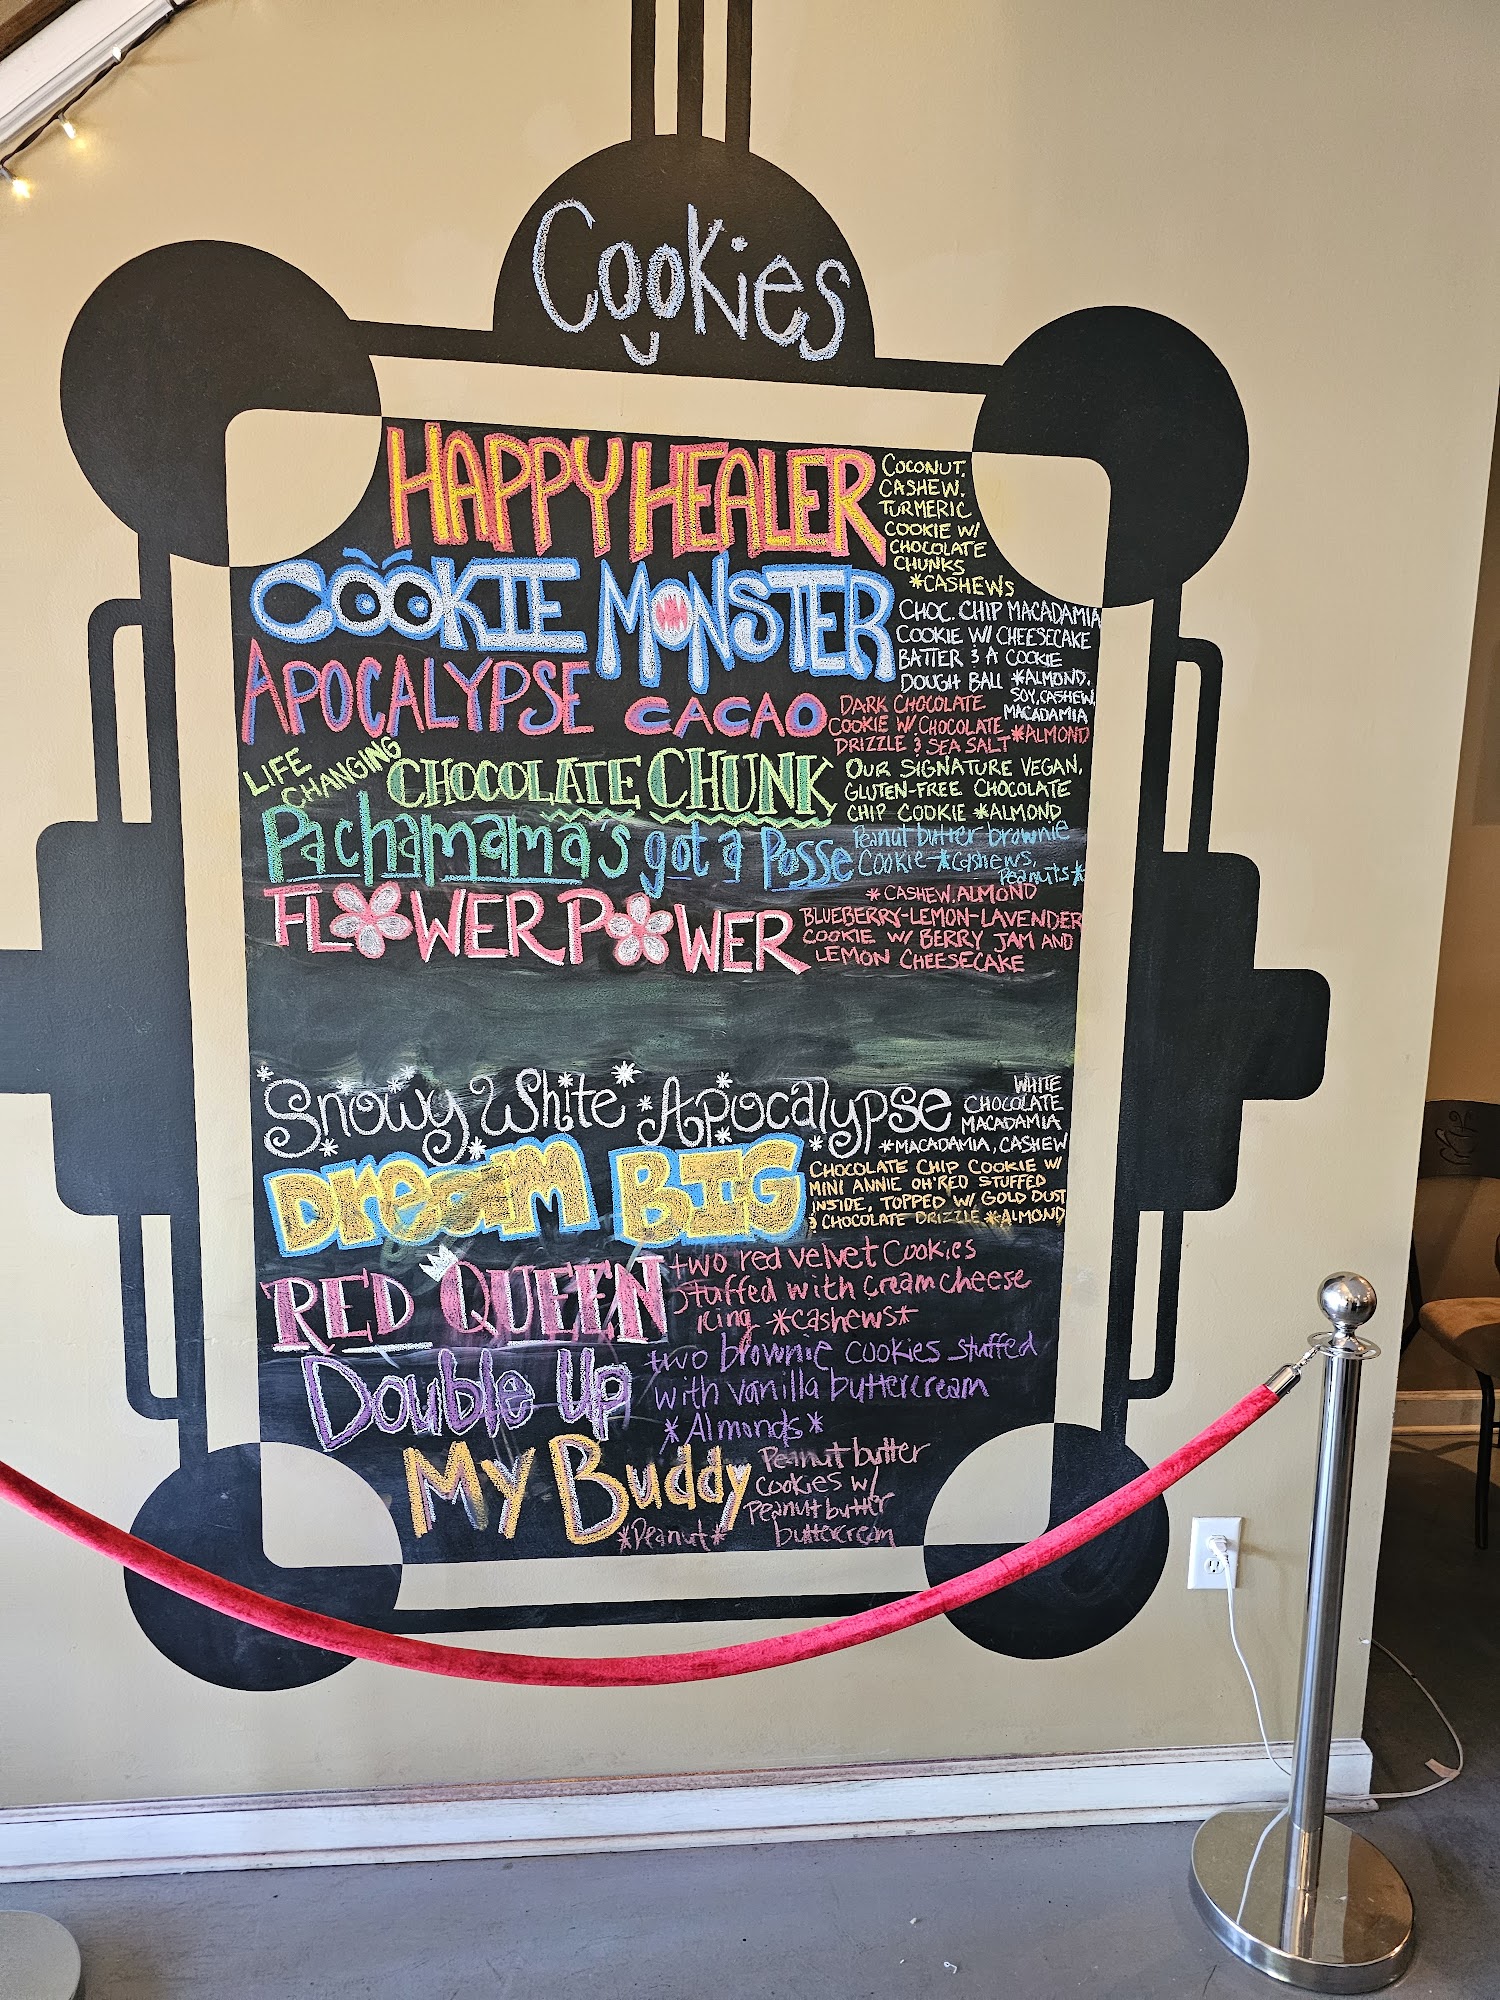 Cookies
HAPPY HEALER
COCONUT,
CASHEW,
TURMERIC
COOKIE W/
CHOCOLATE
CHUNKS
*CASHEWS
COOKIE MONSTER
CHOC. CHIP MACADAMIA
COOKIE W/ CHEESECAKE
BATTER & A COOKIE
DOUGH BALL *ALMOND,
SOY, CASHEW,
MACADAMIA
APOCALYPSE CACAO
DARK CHOCOLATE
COOKIE W/ CHOCOLATE
DRIZZLE & SEA SALT *ALMOND
LIFE
CHANGING
CHOCOLATE CHUNK
OUR SIGNATURE VEGAN,
GLUTEN-FREE CHOCOLATE
CHIP COOKIE *ALMOND
Pachamama's got a Posse
Peanut butter brownie
Cookie *Cashews,
Peanuts*
FLOWER POWER
*CASHEW, ALMOND
BLUEBERRY-LEMON-LAVENDER
COOKIE W/ BERRY JAM AND
LEMON CHEESECAKE
Snowy White Apocalypse
WHITE
CHOCOLATE
MACADAMIA
*MACADAMIA, CASHEW
DREAM BIG
CHOCOLATE CHIP COOKIE W/
MINI ANNIE OH'RED STUFFED
INSIDE, TOPPED W/ GOLD DUST
& CHOCOLATE DRIZZLE *ALMOND
RED QUEEN
two red velvet Cookies
stuffed with Cream cheese
icing *cashews*
Double Up
two brownie cookies stuffed
with vanilla buttercream
*Almonds*
My Buddy
Peanut butter
cookies w/
Peanut butter
buttercream
*Peanut*